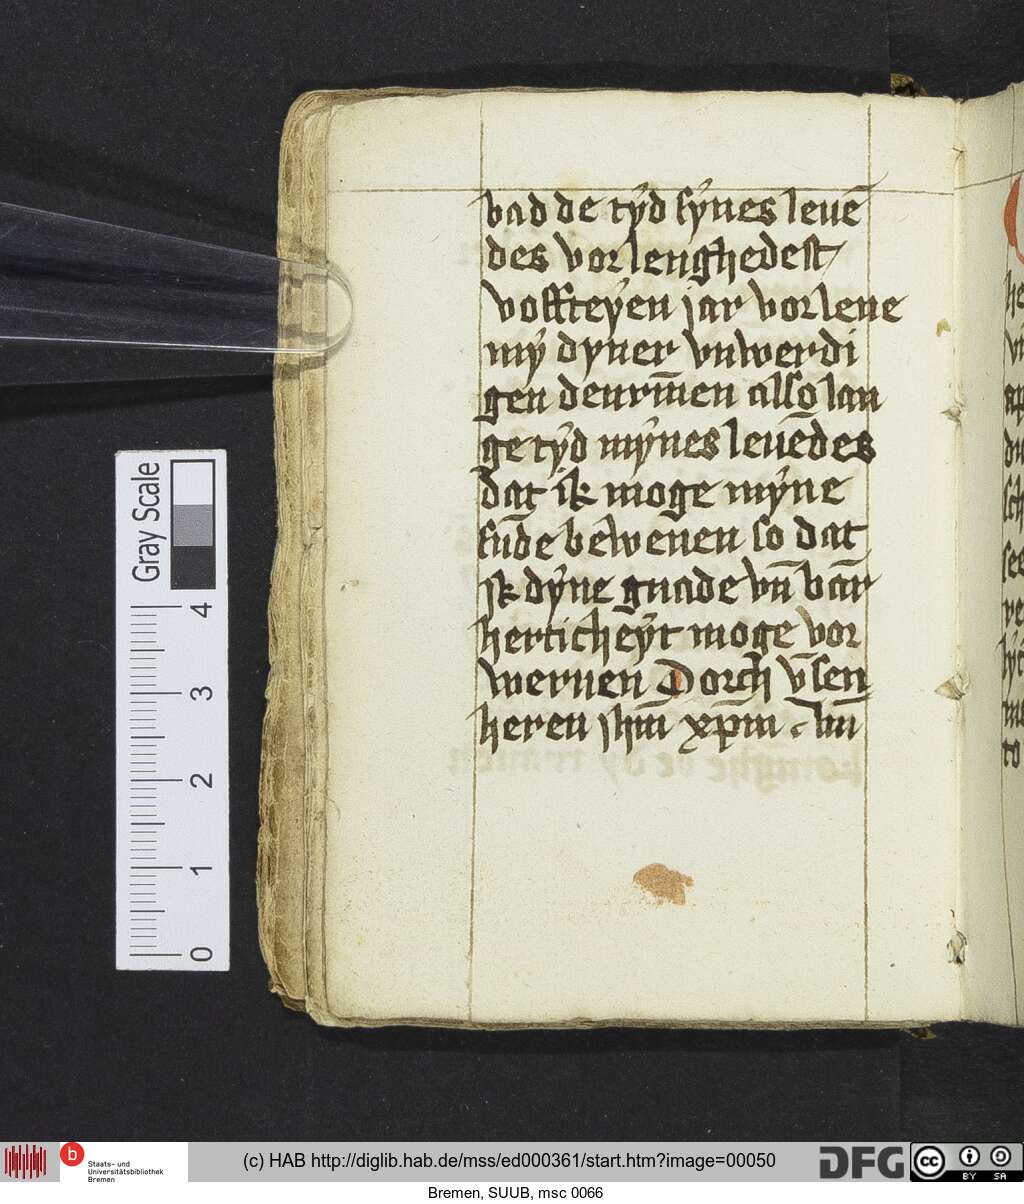 vad de tẏd sẏnes leuē
des vor lenghedest
voffteẏen jar vor lene
mẏ dyner vnwerdi
gen denrīnen also lan
ge tẏd mẏnes leuēdes
dat ik moge mẏne
sūde bewenen so dat
ik dẏne gnade vn̄ bar̄
herticheẏt moge vor
weruen Dorch vnsen
heren ihm̄ xp̄m . vn̄
Gray Scale
4
3
2
1
0
b
Staats- und
Universitätsbibliothek
Bremen
(c) HAB http://diglib.hab.de/mss/ed000361/start.htm?image=00050
DFG
cc
BY SA
Bremen, SUUB, msc 0066